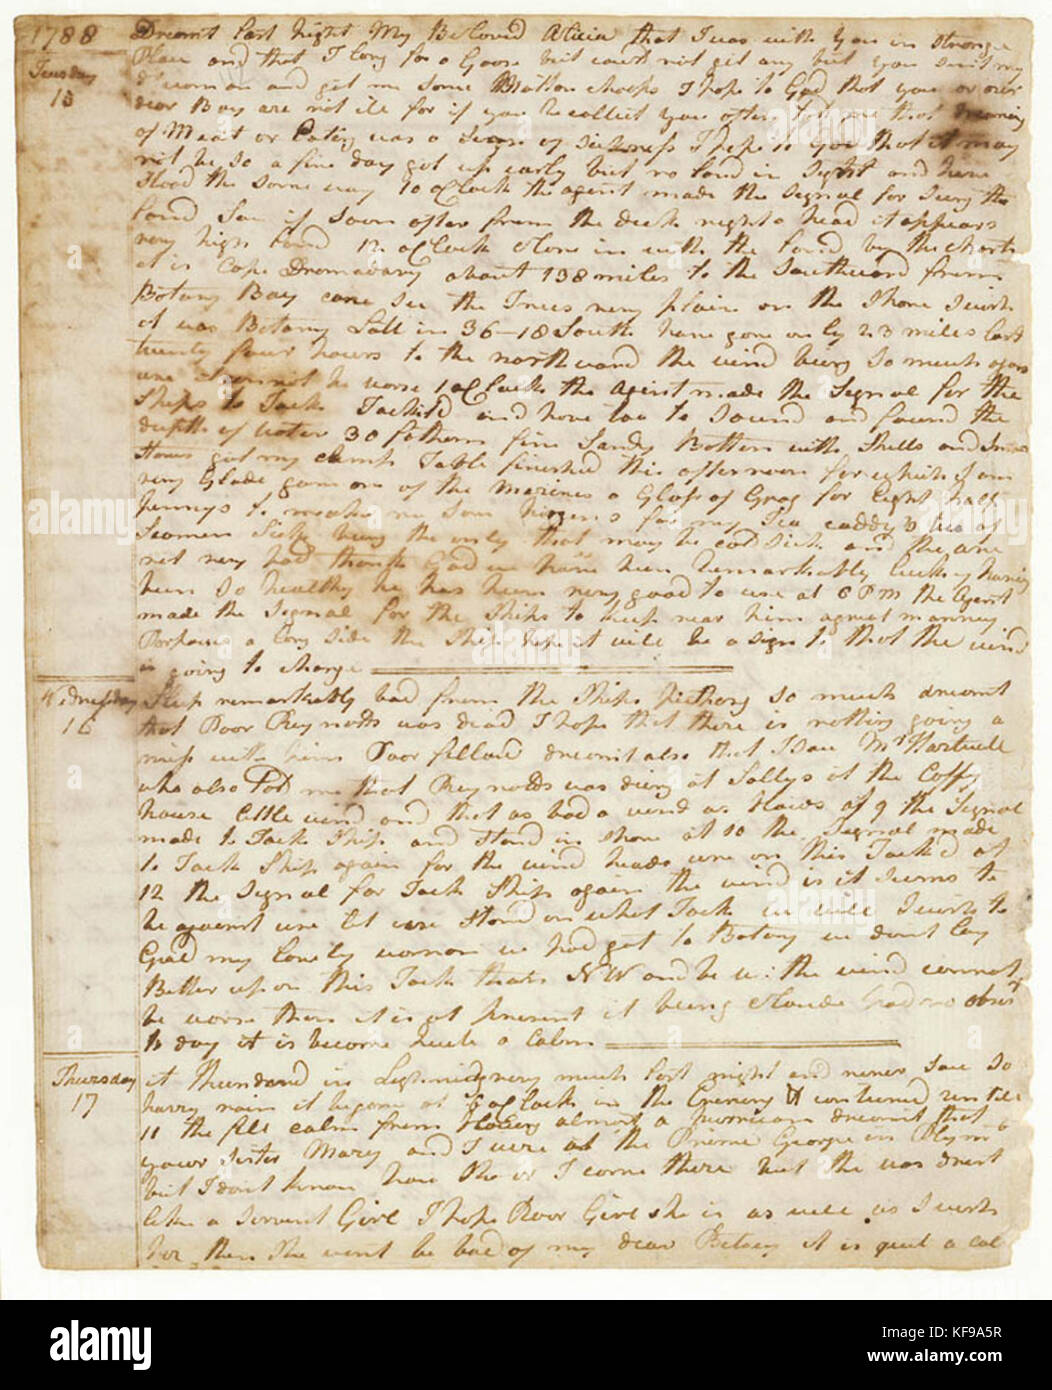 1788
Tuesday
15
Dreamt last night My Beloved Alicia that I was with you in Strange
Place and that I long for a Goose but could not get any but you sent my
woman and got me some Mutton Chops I hope to God that you or our
dear Boy are not ill for if you recollect you often told me that dreaming
of Meat or Eating was a Sign of Sickness I hope to God that it may
not be so a fine day got up early but no land in Sight and here
Stood the same way 10 oClock the agent made the Signal for Seing the
land Saw it Soon after from the deck right a head it appears
very high land 12 oClock close in with the land by the charts
it is Cape Dromadary about 138 miles to the Southward from
Botany Bay can see the Trees very plain on the Shore I wish
it was Botany Latt in 36-18 South have gone only 23 miles last
twenty four hours to the northward the wind being so much against
use it cannot be worse 1 oClock the Agent made the Signal for the
Ships to Tack Tack'd and hove too to Sound and found the
depth of water 30 fathom fine Sandy Bottom with Shells and Small
Stones got my Table finished this afternoon for which I am
very Glade gave one of the Marines a Glass of Grog for Eight half
pennys to make me Some hinges for my Tea caddy two of
Seamen Sick being the only that may be cald Sick and they are
not very bad thank God we have been remarkably lucky having
been So healthy he has been very good to use at 6 PM the Agent
made the Signal for the Ships to keep near him a great manney
Porpouses a long Side the Ship hope it will be a sign to that the wind
is going to change
Wednesday
16
Slep remarkably bad from the Ships pitching so much dreamt
that Poor Reynolds was dead I hope that there is nothing going a
miss with him Poor fellow dreamt also that I saw Mr Hartwell
who also Told me that Reynolds was dieing at Sallys at the Coffy
house little wind and that as bad a wind as blows at 9 the Signal
made to Tack Ships and Stand in Shore at 10 the Signal made
to Tack Ship again for the wind heads use on this Tack'd at
12 the Signal for Tack Ship again the wind is it Seems to
be against use let use Stand on what Tack we will I wish to
God my lovely woman we had got to Botany we dont lay
Better upon this Tack than NW and be W: the wind cannot
be worse then it is at present it being Cloude had no obsern
to day it is become quite a Calm
Thursday
17
it thunderd in Lightning very much last night and never saw so
harry rain it began at 6 oClock in the Evening & continued until
11 the fell calm from blowing almost a hurrican dreamt that
your Sister Mary and I were at the Prince George in Plymth
but I dont know how She or I came there but She was drest
like a Servent Girl I hope Poor Girl she is as well as I wish
her then She wont be bad of my dear Betsey it is quit a cal
alamy
Image ID: KF9A5R
www.alamy.com